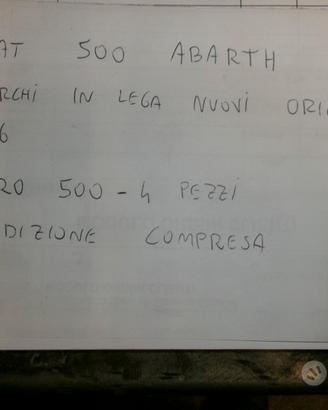 AT 500 ABARTH
RCHI IN LEGA NUOVI ORI
6
RO 500 - 4 PEZZI
DIZIONE COMPRESA